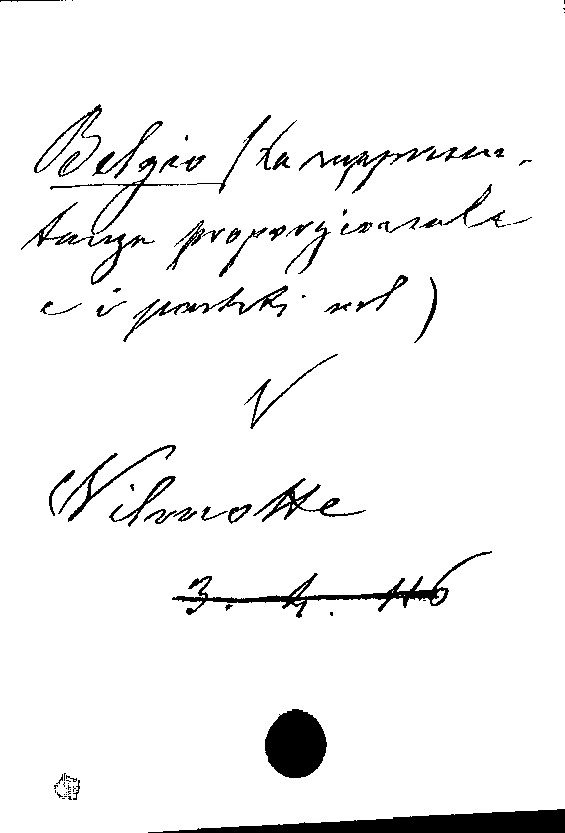 Belgio (La rappresen-
tanza proporzionale
e i partiti nel)
V
Wilmotte
3. 4. 116